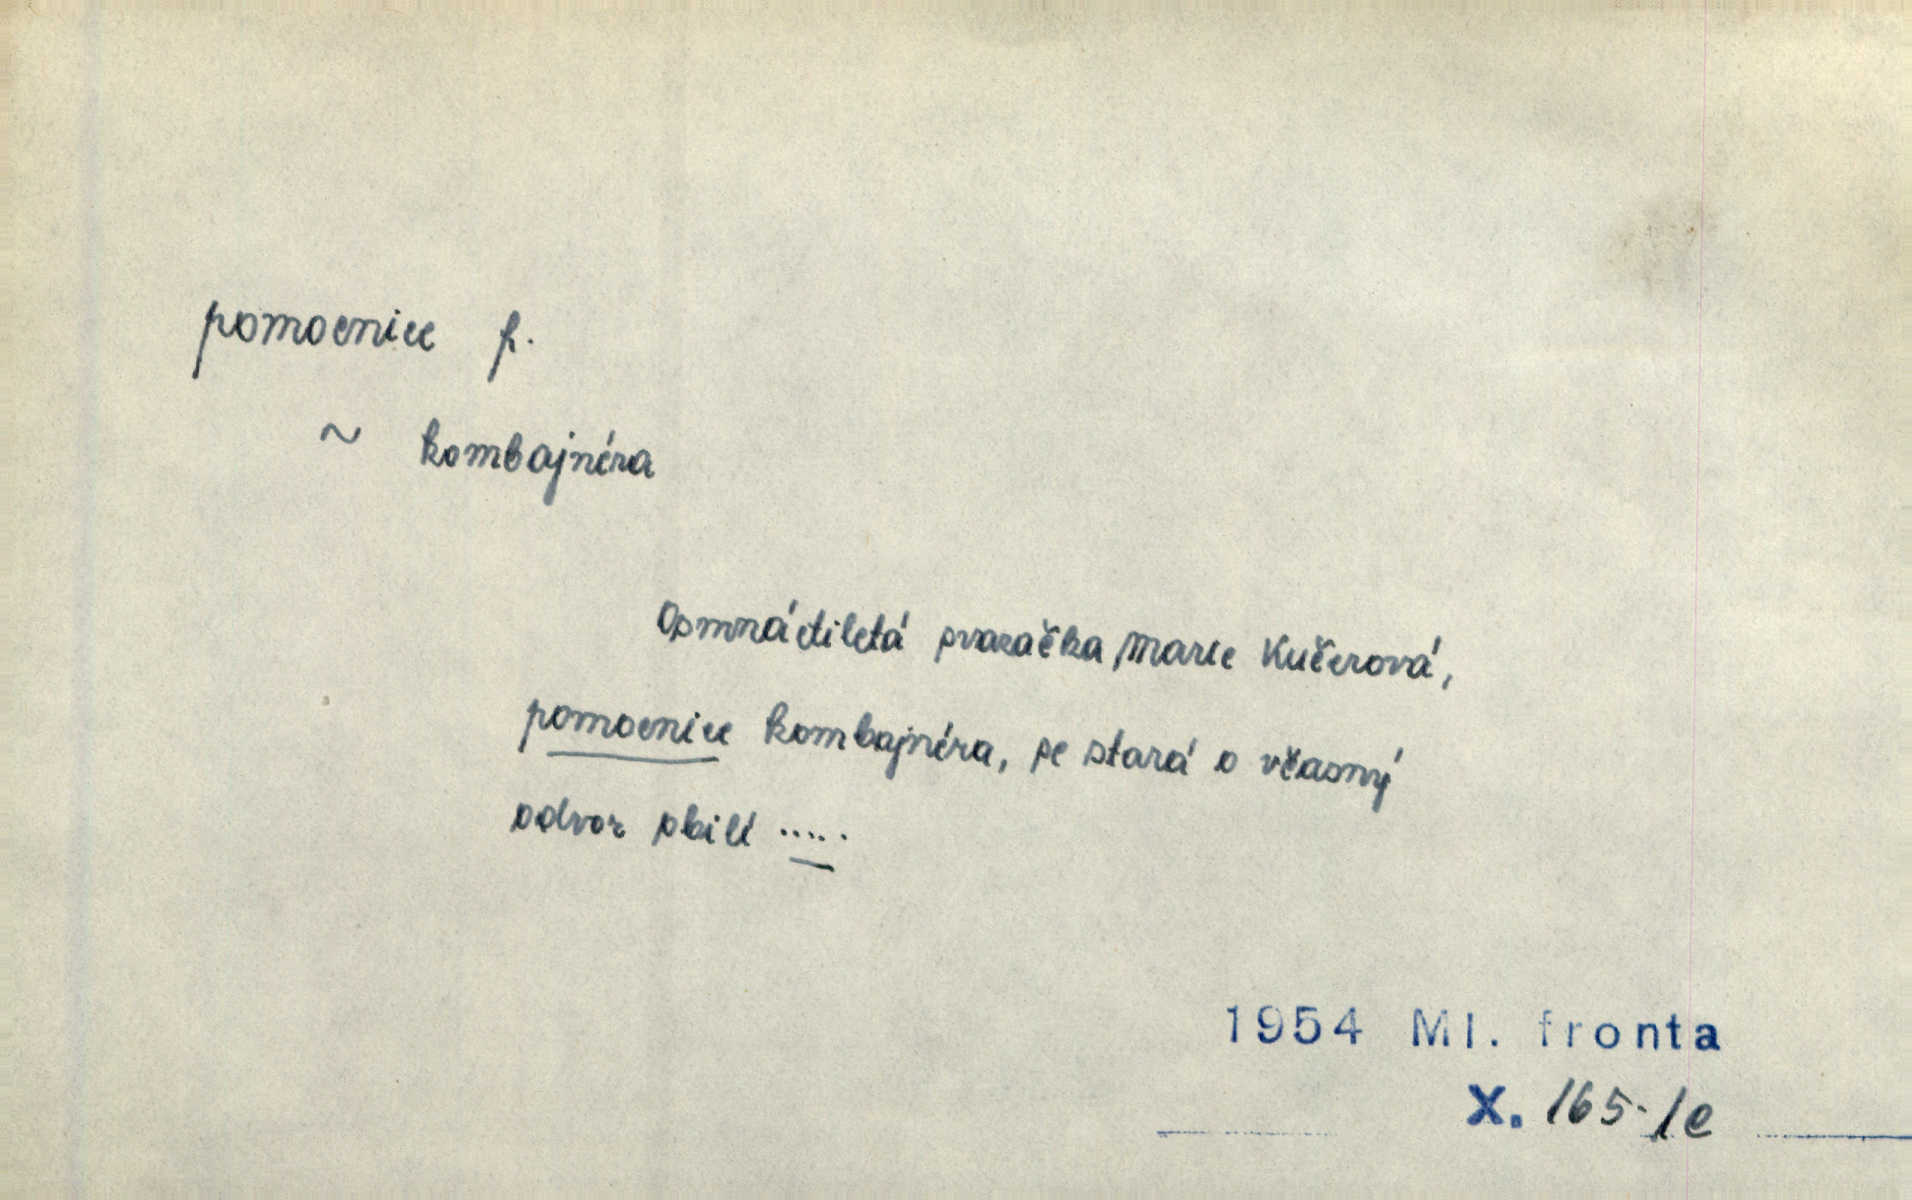 pomocnice f.
~ kombajnéra
Osmnáctiletá svazačka Marie Kučerová,
pomocnice kombajnéra, se stará o včasný
odvoz obilí .....
1954 Ml. fronta
X. 165-1e